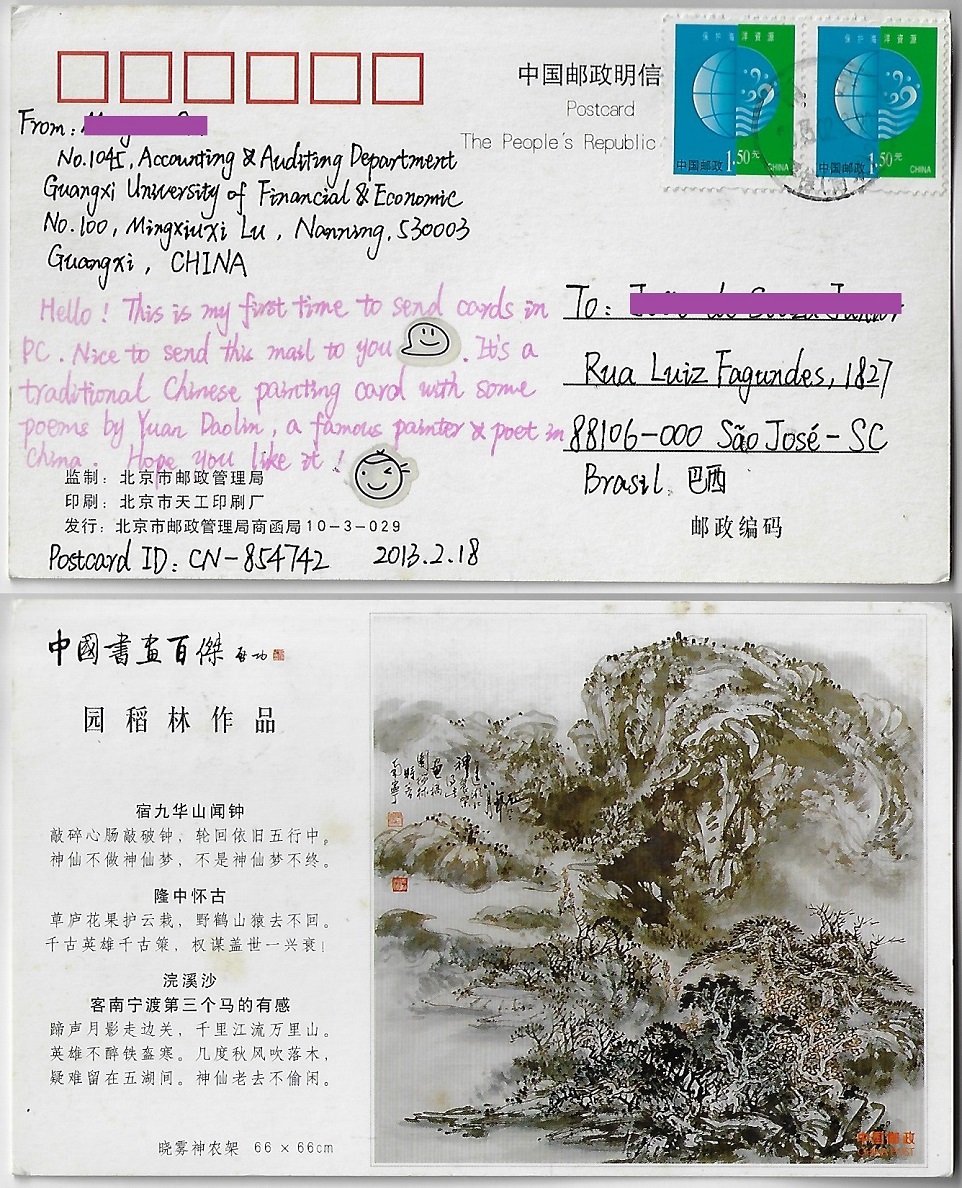 中国邮政明信
Postcard
The People's Republic
保护海洋资源
中国邮政 1.50元 CHINA
保护海洋资源
中国邮政 1.50元 CHINA
From:
No.1045, Accounting & Auditing Department
Guangxi University of Financial & Economic
No.100, Mingxiuxi Lu, Nanning, 530003
Guangxi, CHINA
Hello! This is my first time to send cards in
PC. Nice to send this mail to you. It's a
traditional Chinese painting card with some
poems by Yuan Daolin, a famous painter & poet in
China. Hope you like it!
To:
Rua Luiz Fagundes, 1827
88106-000 São José-SC
Brasil. 巴西
邮政编码
监制：北京市邮政管理局
印刷：北京市天工印刷厂
发行：北京市邮政管理局商函局10-3-029
Postcard ID: CN-854742 2013.2.18
中國書画百傑 启功
园稻林作品
宿九华山闻钟
敲碎心肠敲破钟，轮回依旧五行中。
神仙不做神仙梦，不是神仙梦不终。
隆中怀古
草庐花果护云栽，野鹤山猿去不回。
千古英雄千古策，权谋盖世一兴衰！
浣溪沙
客南宁渡第三个马的有感
蹄声月影走边关，千里江流万里山。
英雄不醉铁盔寒。几度秋风吹落木，
疑难留在五湖间。神仙老去不偷闲。
晓雾神农架 66×66cm
中国邮政
CHINA POST